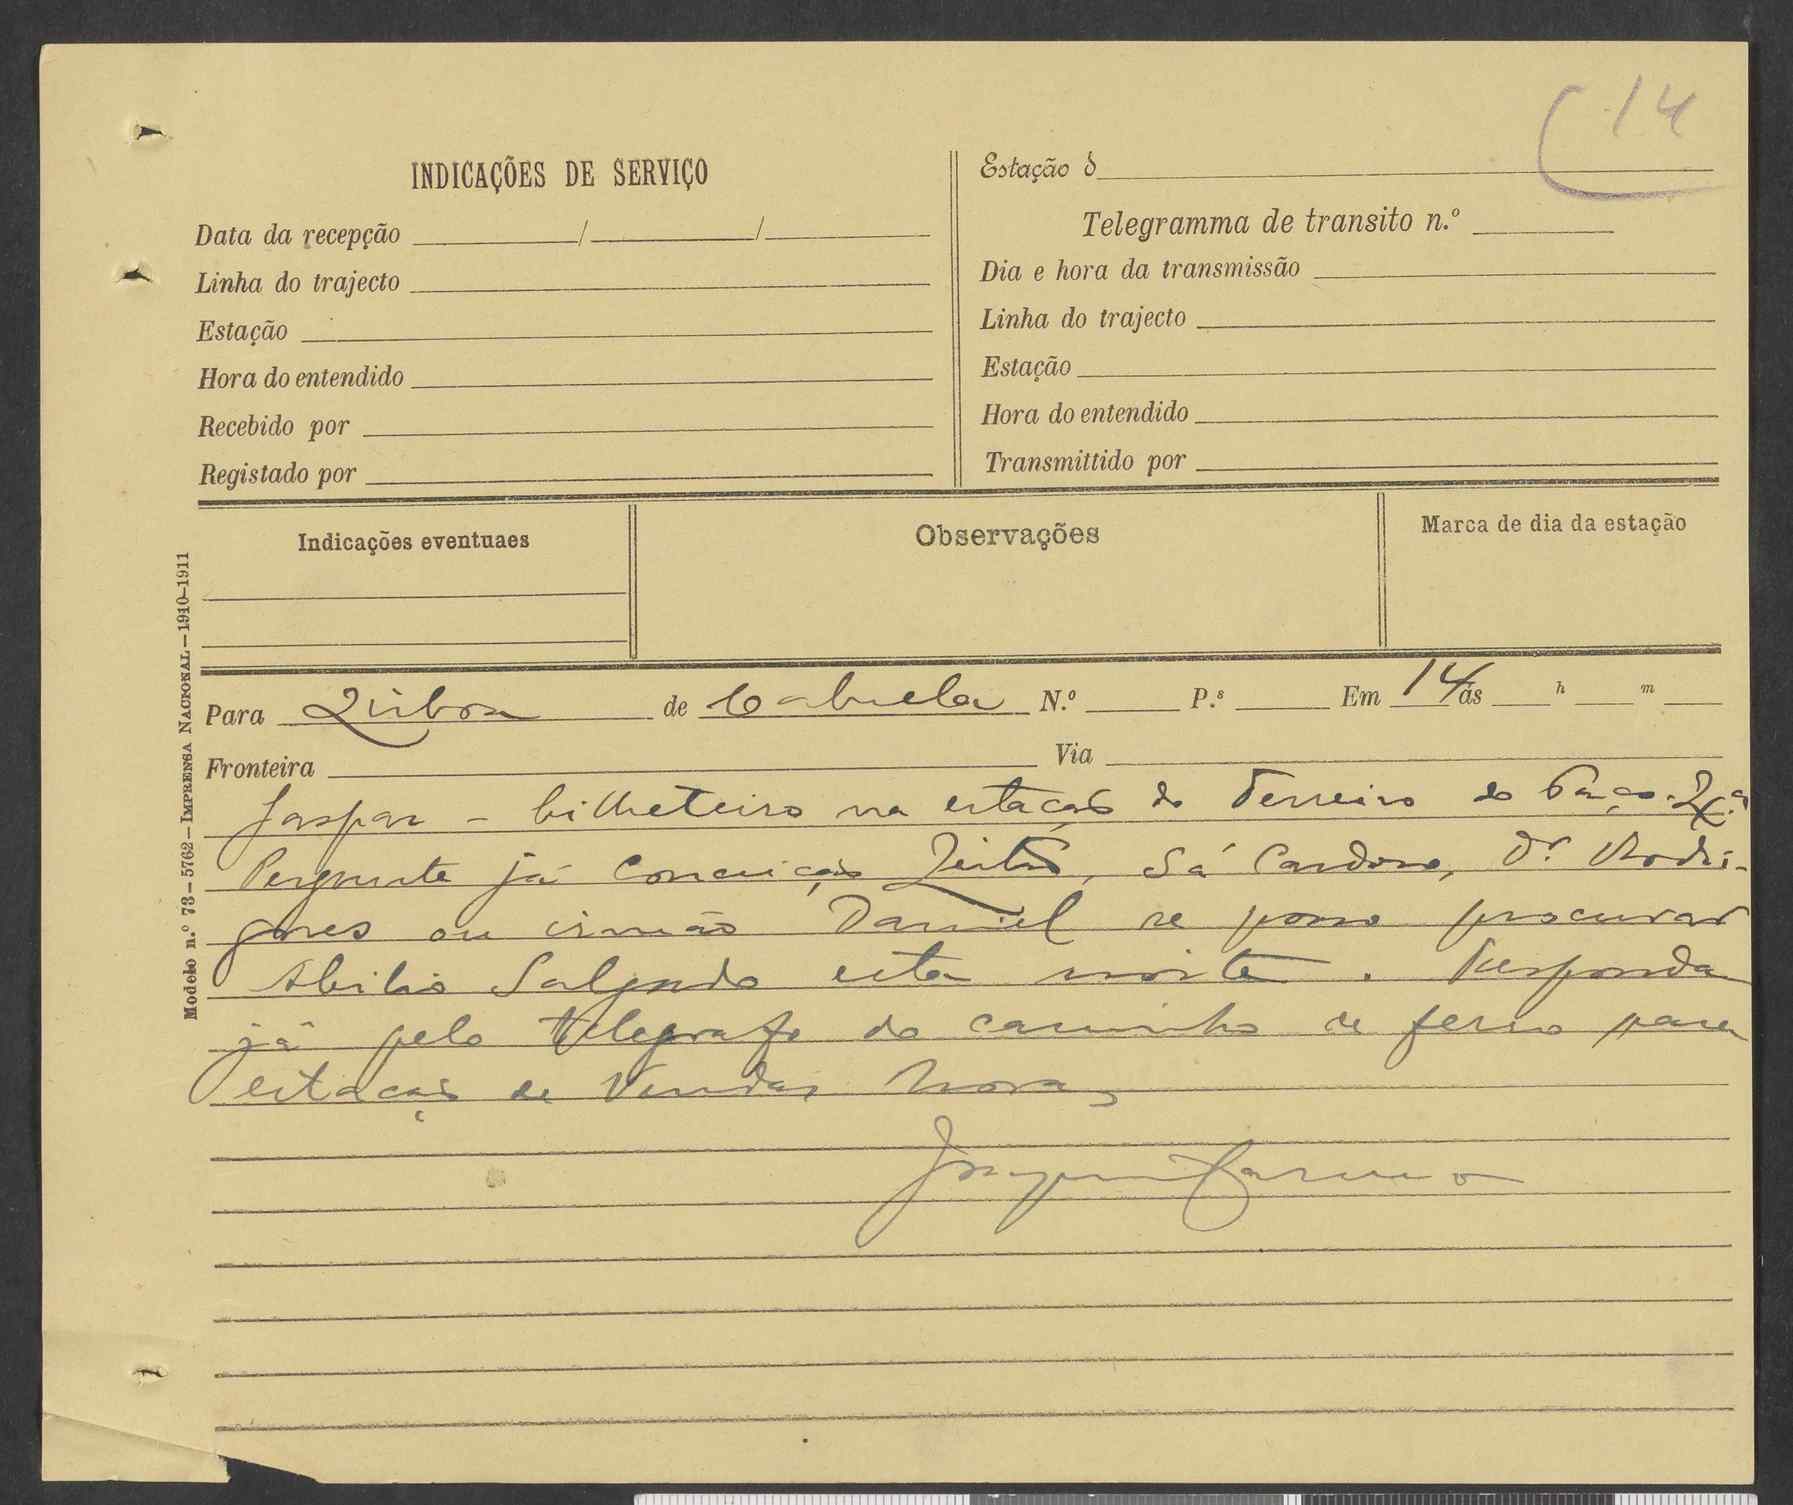 14
INDICAÇÕES DE SERVIÇO
Data da recepção / /
Linha do trajecto
Estação
Hora do entendido
Recebido por
Registado por
Estação d
Telegramma de transito n.º
Dia e hora da transmissão
Linha do trajecto
Estação
Hora do entendido
Transmittido por
Indicações eventuaes
Observações
Marca de dia da estação
Modelo n.º 73 – 5762 – IMPRENSA NACIONAL – 1910-1911
Para Lisboa de Cabrela N.º P.s Em 14 ás h m
Fronteira Via
Gaspar - bilheteiro na estação do Terreiro do Paço. Lx.ª
Pergunte já Conceição Leitão, Sá Cardoso, Dr. Rodri-
gues ou irmão Daniel se posso procurar
Abilio Salgado esta noite. Responda
já pelo telegrafo do caminho de ferro para
estação de Vendas Novas